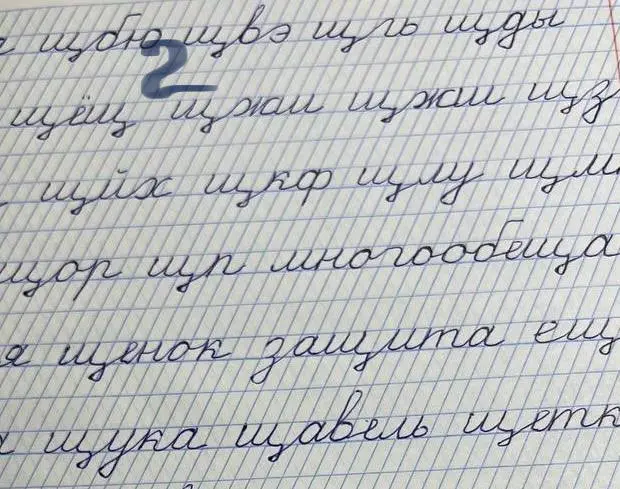 щбю щвэ щгь щды
щёщ щжш щжш щз
щйх щкф щлу щм
щор щп многообеща
я щенок защита ещ
щука щавель щетк
2